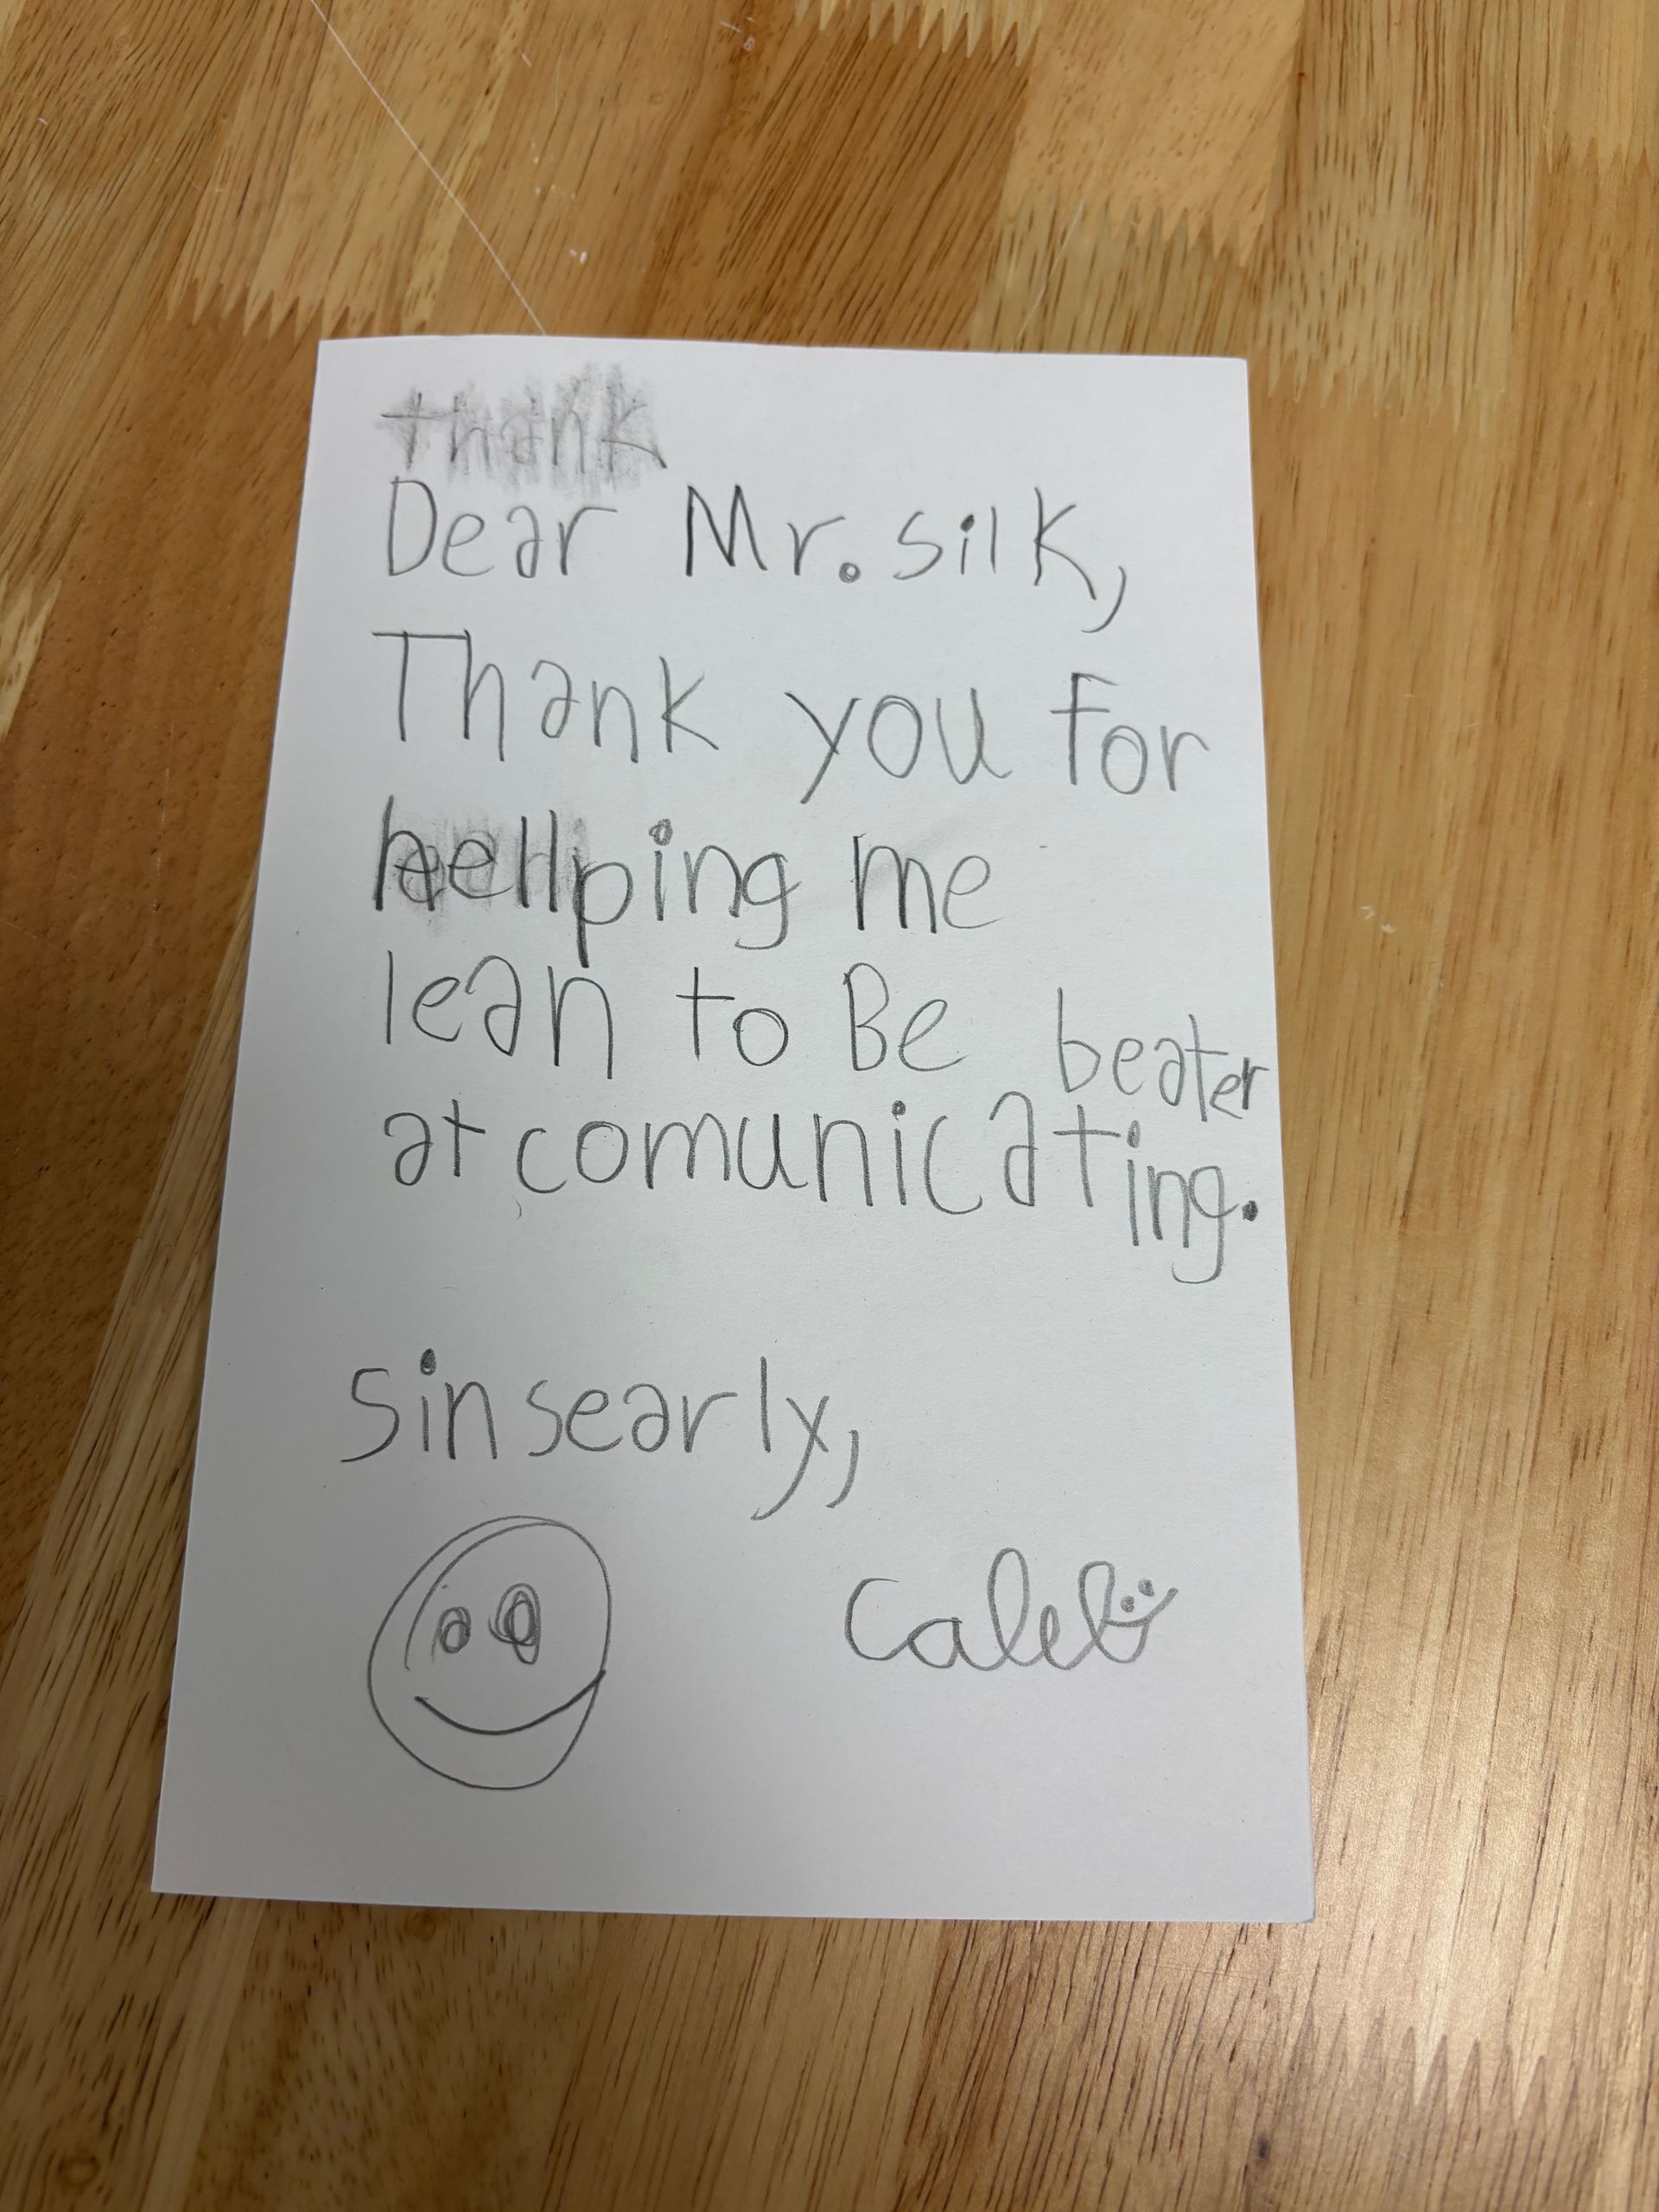 thank
Dear Mr. silk,
Thank you for
hellping me
lean to Be beater
at comunicating.
sinsearly,
Caleb